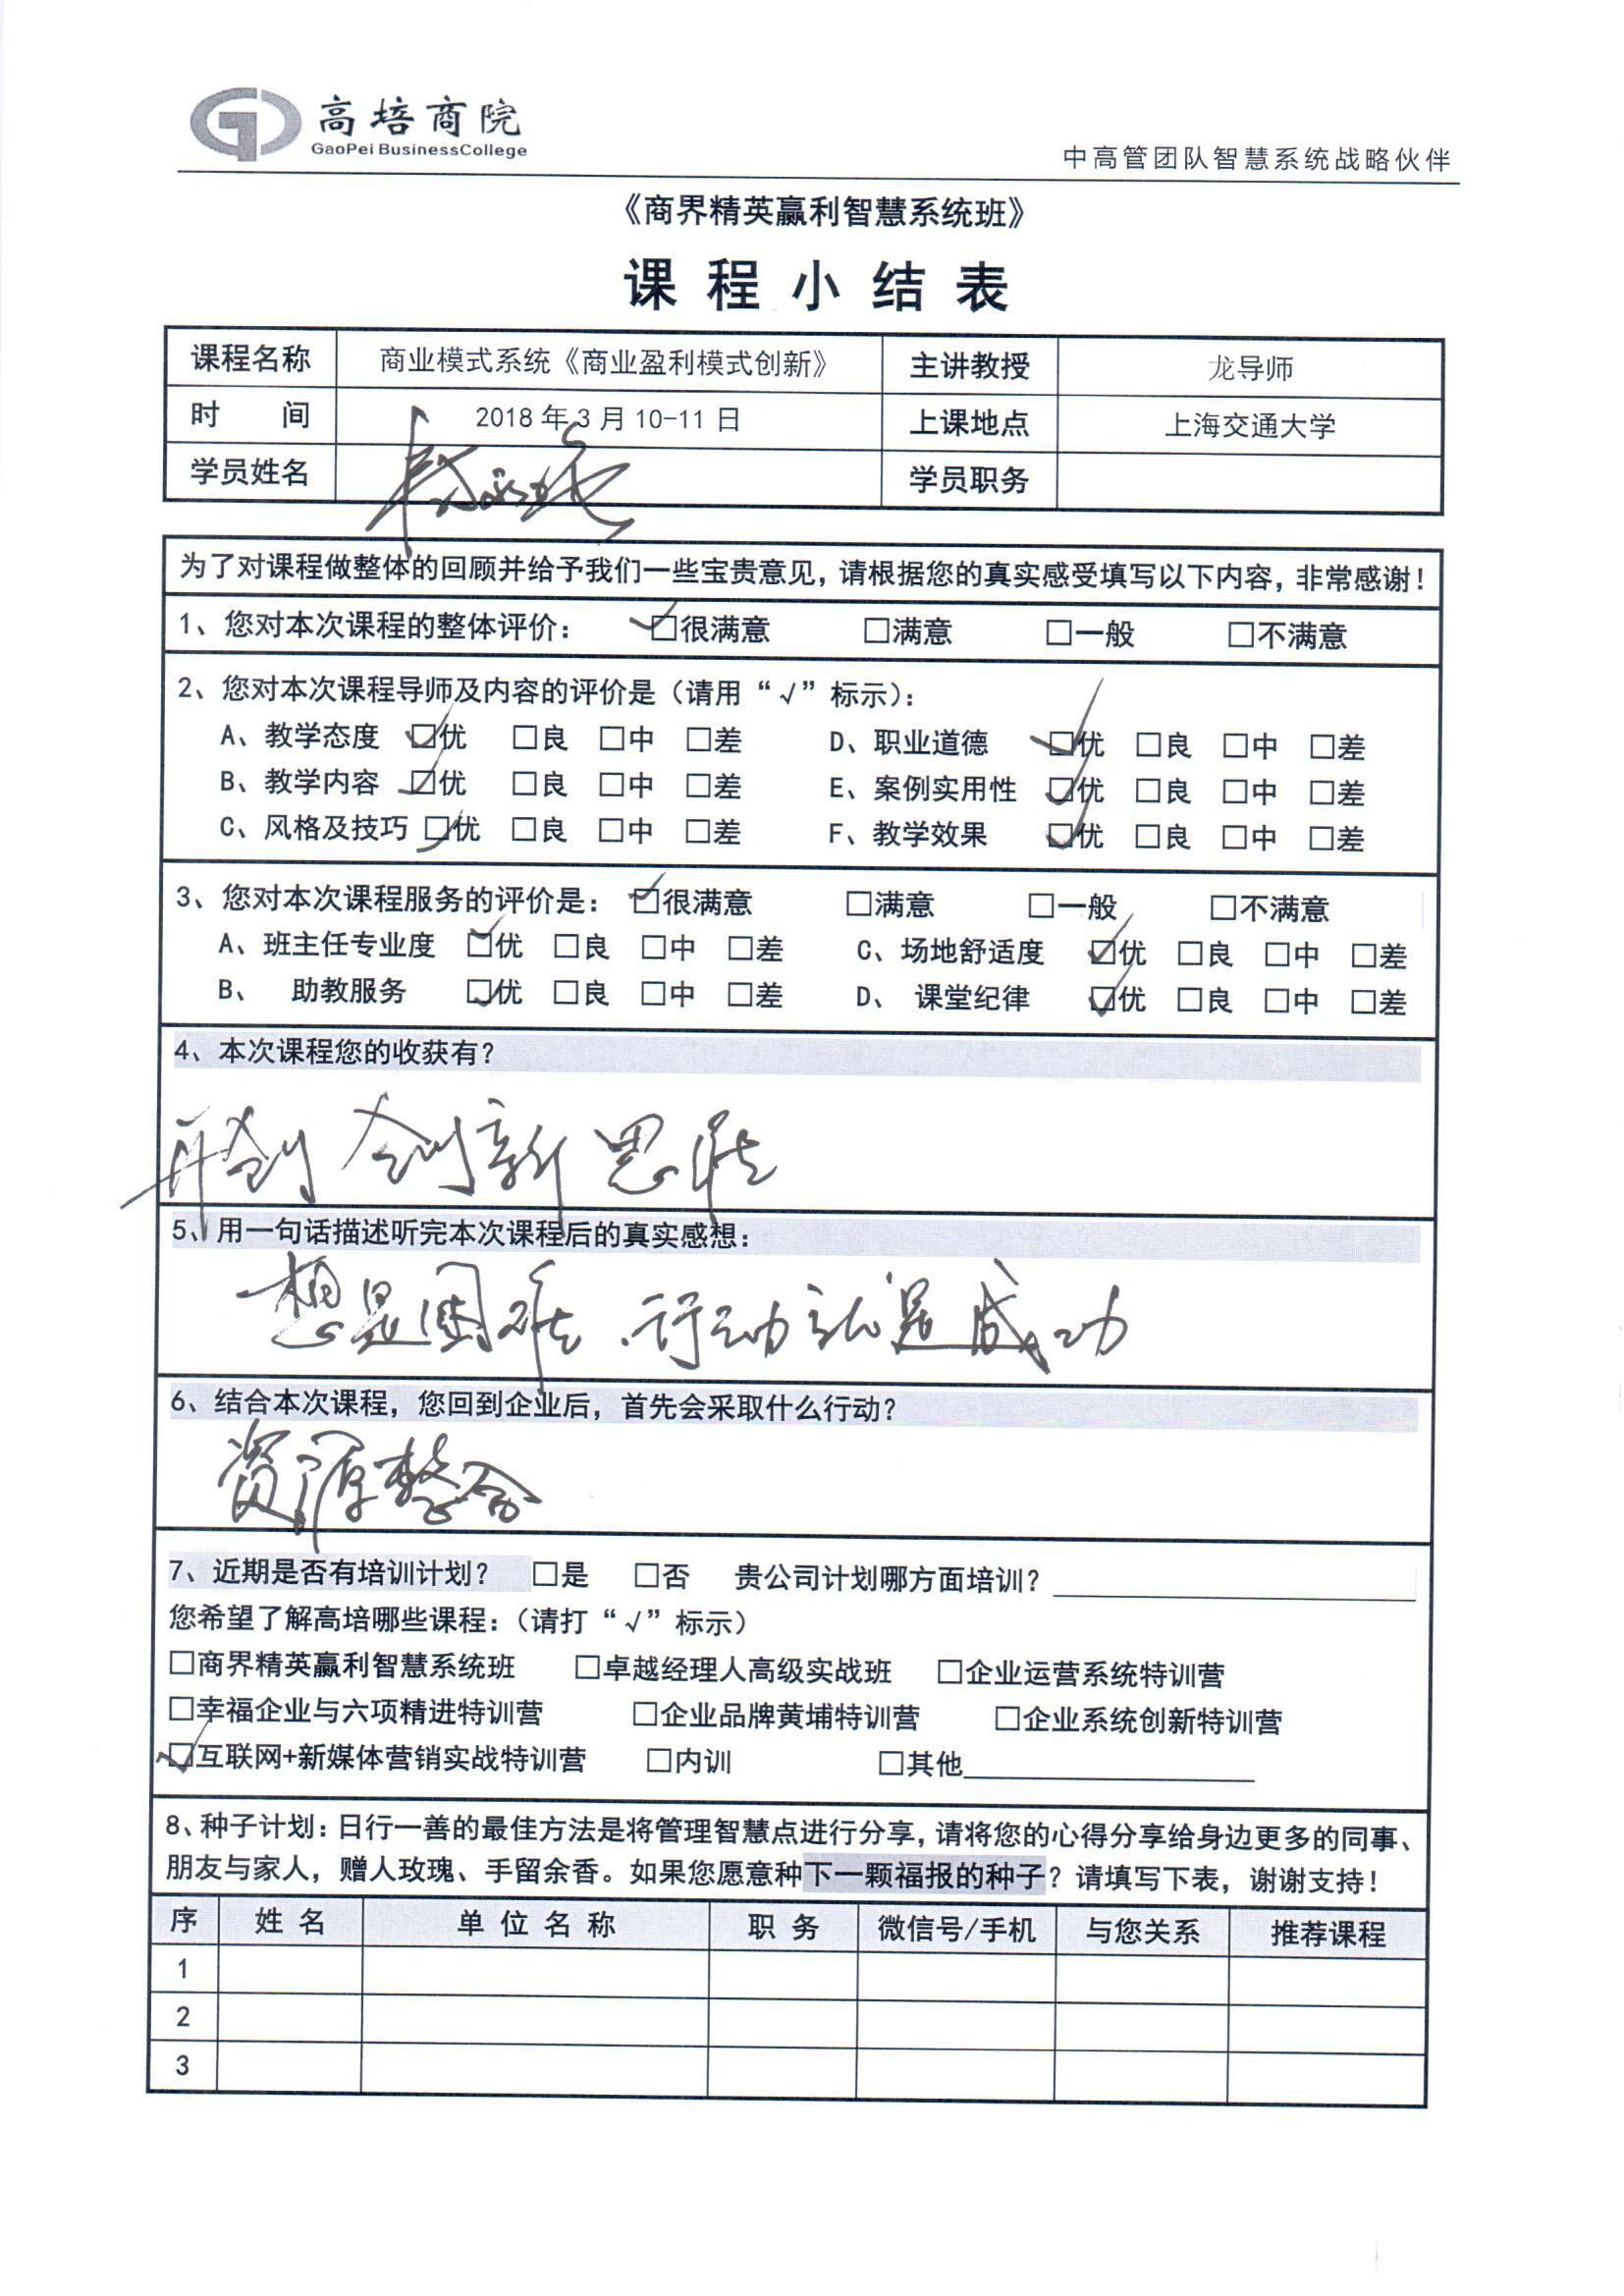 高培商院
GaoPei BusinessCollege
中高管团队智慧系统战略伙伴
《商界精英赢利智慧系统班》
课程小结表
课程名称 商业模式系统《商业盈利模式创新》 主讲教授 龙导师
时 间 2018年3月10-11日 上课地点 上海交通大学
学员姓名 学员职务
为了对课程做整体的回顾并给予我们一些宝贵意见，请根据您的真实感受填写以下内容，非常感谢！
1、您对本次课程的整体评价： ☑很满意 □满意 □一般 □不满意
2、您对本次课程导师及内容的评价是（请用“√”标示）：
A、教学态度 ☑优 □良 □中 □差 D、职业道德 ☑优 □良 □中 □差
B、教学内容 ☑优 □良 □中 □差 E、案例实用性 ☑优 □良 □中 □差
C、风格及技巧 ☑优 □良 □中 □差 F、教学效果 ☑优 □良 □中 □差
3、您对本次课程服务的评价是： ☑很满意 □满意 □一般 □不满意
A、班主任专业度 ☑优 □良 □中 □差 C、场地舒适度 ☑优 □良 □中 □差
B、 助教服务 ☑优 □良 □中 □差 D、 课堂纪律 ☑优 □良 □中 □差
4、本次课程您的收获有？
开创 创新思维
5、用一句话描述听完本次课程后的真实感想：
想是困难、行动就是成功
6、结合本次课程，您回到企业后，首先会采取什么行动？
资源整合
7、近期是否有培训计划？ □是 □否 贵公司计划哪方面培训？
您希望了解高培哪些课程：（请打“√”标示）
□商界精英赢利智慧系统班 □卓越经理人高级实战班 □企业运营系统特训营
□幸福企业与六项精进特训营 □企业品牌黄埔特训营 □企业系统创新特训营
☑互联网+新媒体营销实战特训营 □内训 □其他
8、种子计划：日行一善的最佳方法是将管理智慧点进行分享，请将您的心得分享给身边更多的同事、
朋友与家人，赠人玫瑰、手留余香。如果您愿意种下一颗福报的种子？请填写下表，谢谢支持！
序 姓名 单位名称 职务 微信号/手机 与您关系 推荐课程
1
2
3